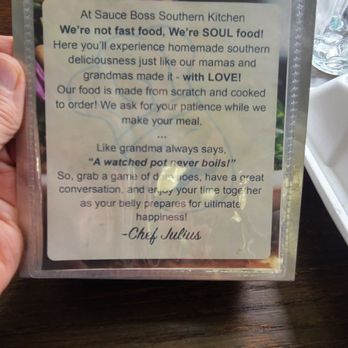 At Sauce Boss Southern Kitchen
We're not fast food, We're SOUL food!
Here you'll experience homemade southern
deliciousness just like our mamas and
grandmas made it - with LOVE!
Our food is made from scratch and cooked
to order! We ask for your patience while we
make your meal.
...
Like grandma always says,
"A watched pot never boils!"
So, grab a game of dominoes, have a great
conversation, and enjoy your time together
as your belly prepares for ultimate
happiness!
-Chef Julius